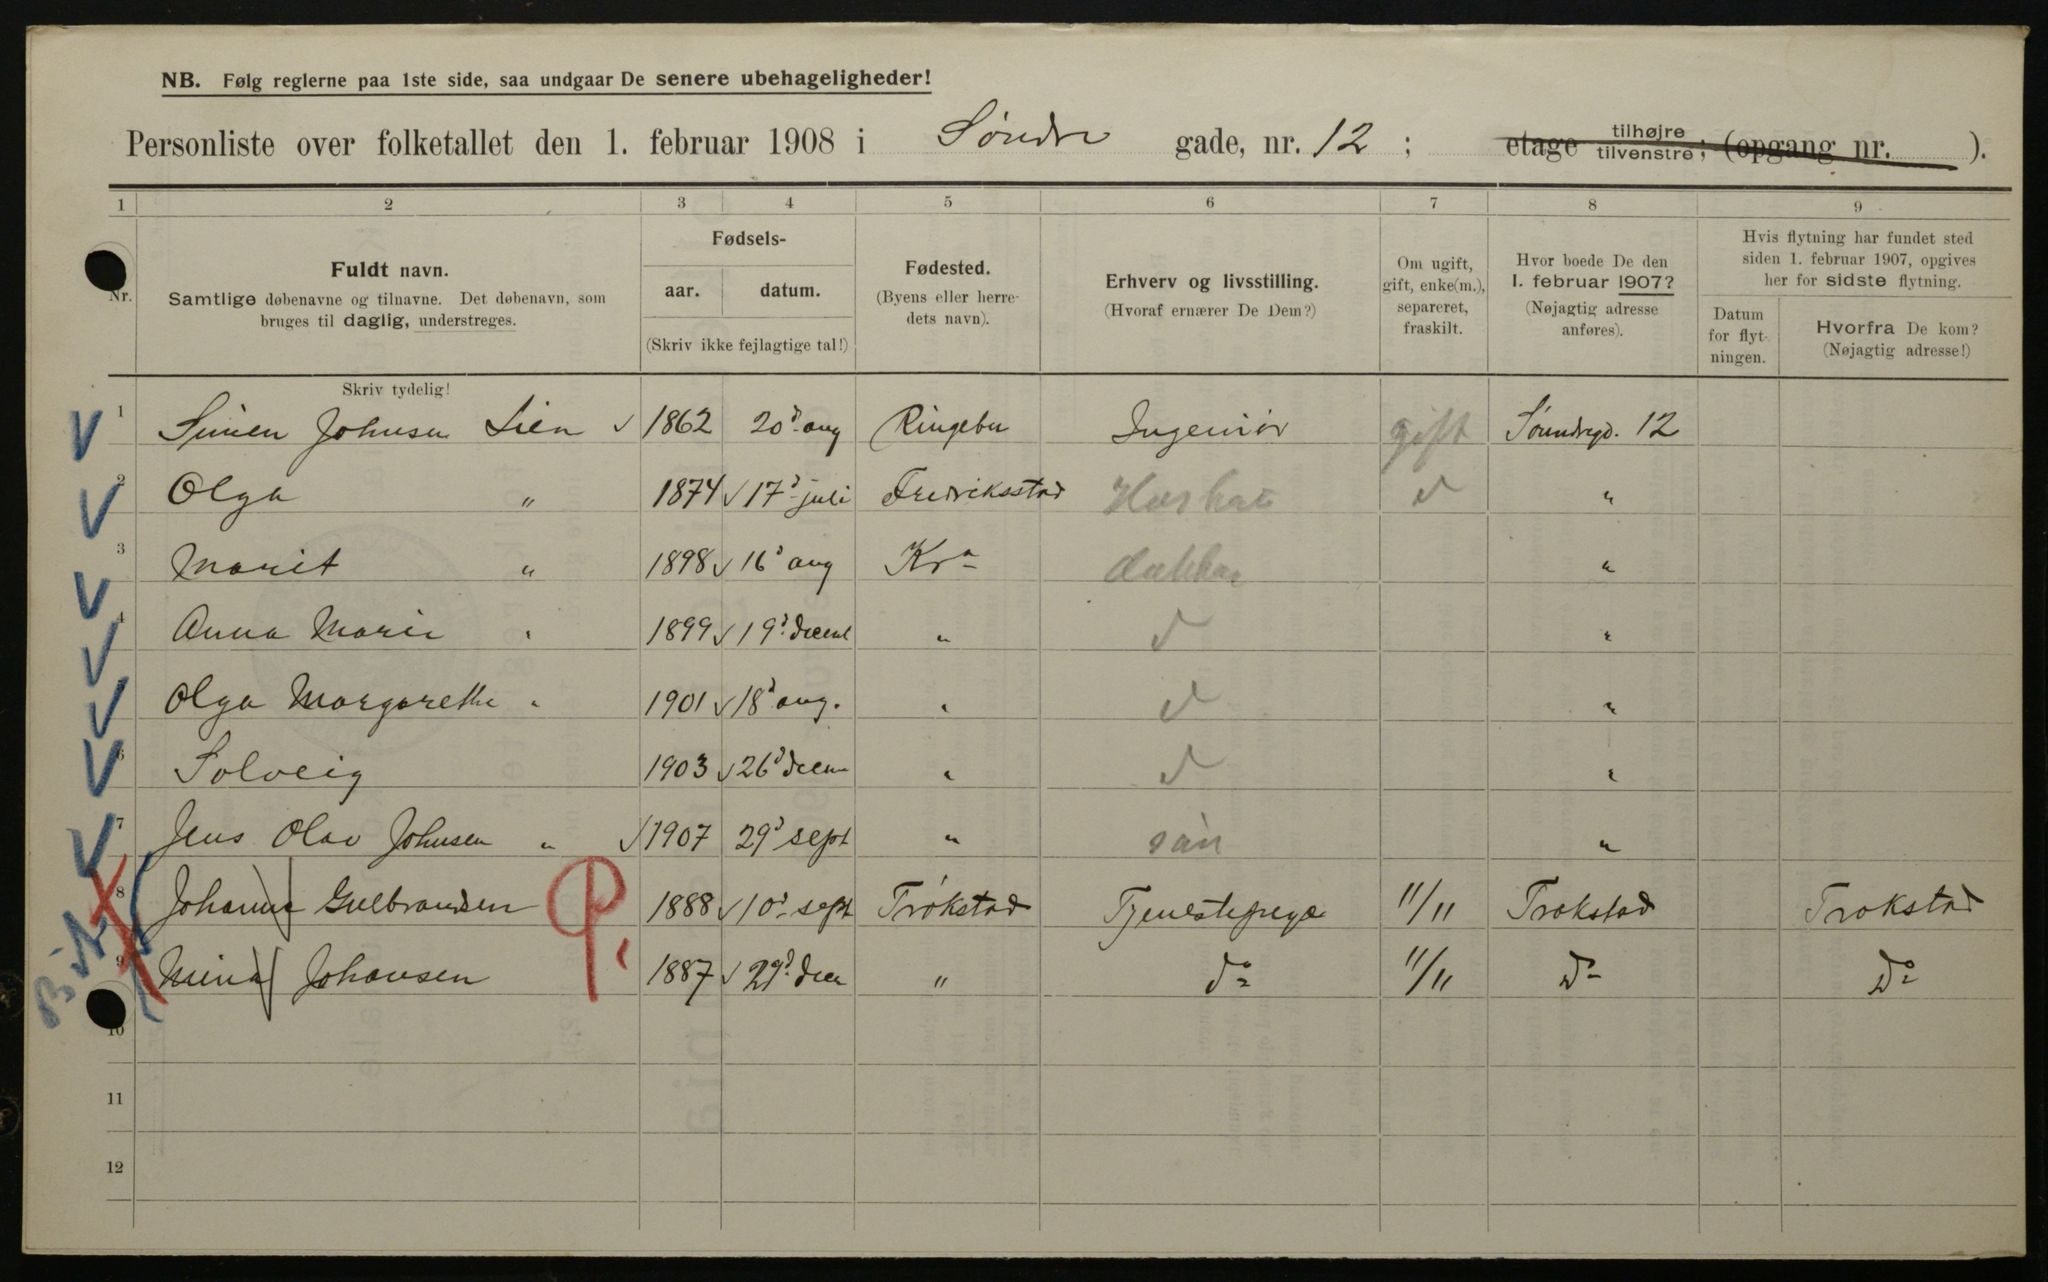 NB. Følg reglerne paa 1ste side, saa undgaar De senere ubehageligheder!
Personliste over folketallet den 1. februar 1908 i Søndre gade, nr. 12 ; etage tilhøjre tilvenstre ; (opgang nr. ).
1 2 3 4 5 6 7 8 9
Nr.
Fuldt navn.
Samtlige døbenavne og tilnavne. Det døbenavn, som
bruges til daglig, understreges.
Skriv tydelig!
Fødsels-
aar. datum.
(Skriv ikke fejlagtige tal!)
Fødested.
(Byens eller herre-
dets navn).
Erhverv og livsstilling.
(Hvoraf ernærer De Dem?)
Om ugift,
gift, enke(m.),
separeret,
fraskilt.
Hvor boede De den
1. februar 1907?
(Nøjagtig adresse
anføres).
Hvis flytning har fundet sted
siden 1. februar 1907, opgives
her for sidste flytning.
Datum
for flyt-
ningen.
Hvorfra De kom?
(Nøjagtig adresse!)
1 Simen Johnsen Lien 1862 20d aug Ringebu Ingeniør gift Søndregd. 12
2 Olga " 1874 17d juli Fredriksstad d "
3 Marit " 1898 16d aug Kra "
4 Anna Marie " 1899 19d " d "
Olga Margarethe " 1901 18d aug. " d "
6 Solveig 1903 26d " d "
7 Jens Olav Johnsen " 1907 29d sept " søn "
8 Johanne Gulbrandsen 1888 10d sept Trøkstad Tjenestepige 11/11 Trøkstad Trøkstad
9 Mina Johansen 1887 29d " do 11/11 Do Do
10
11
12